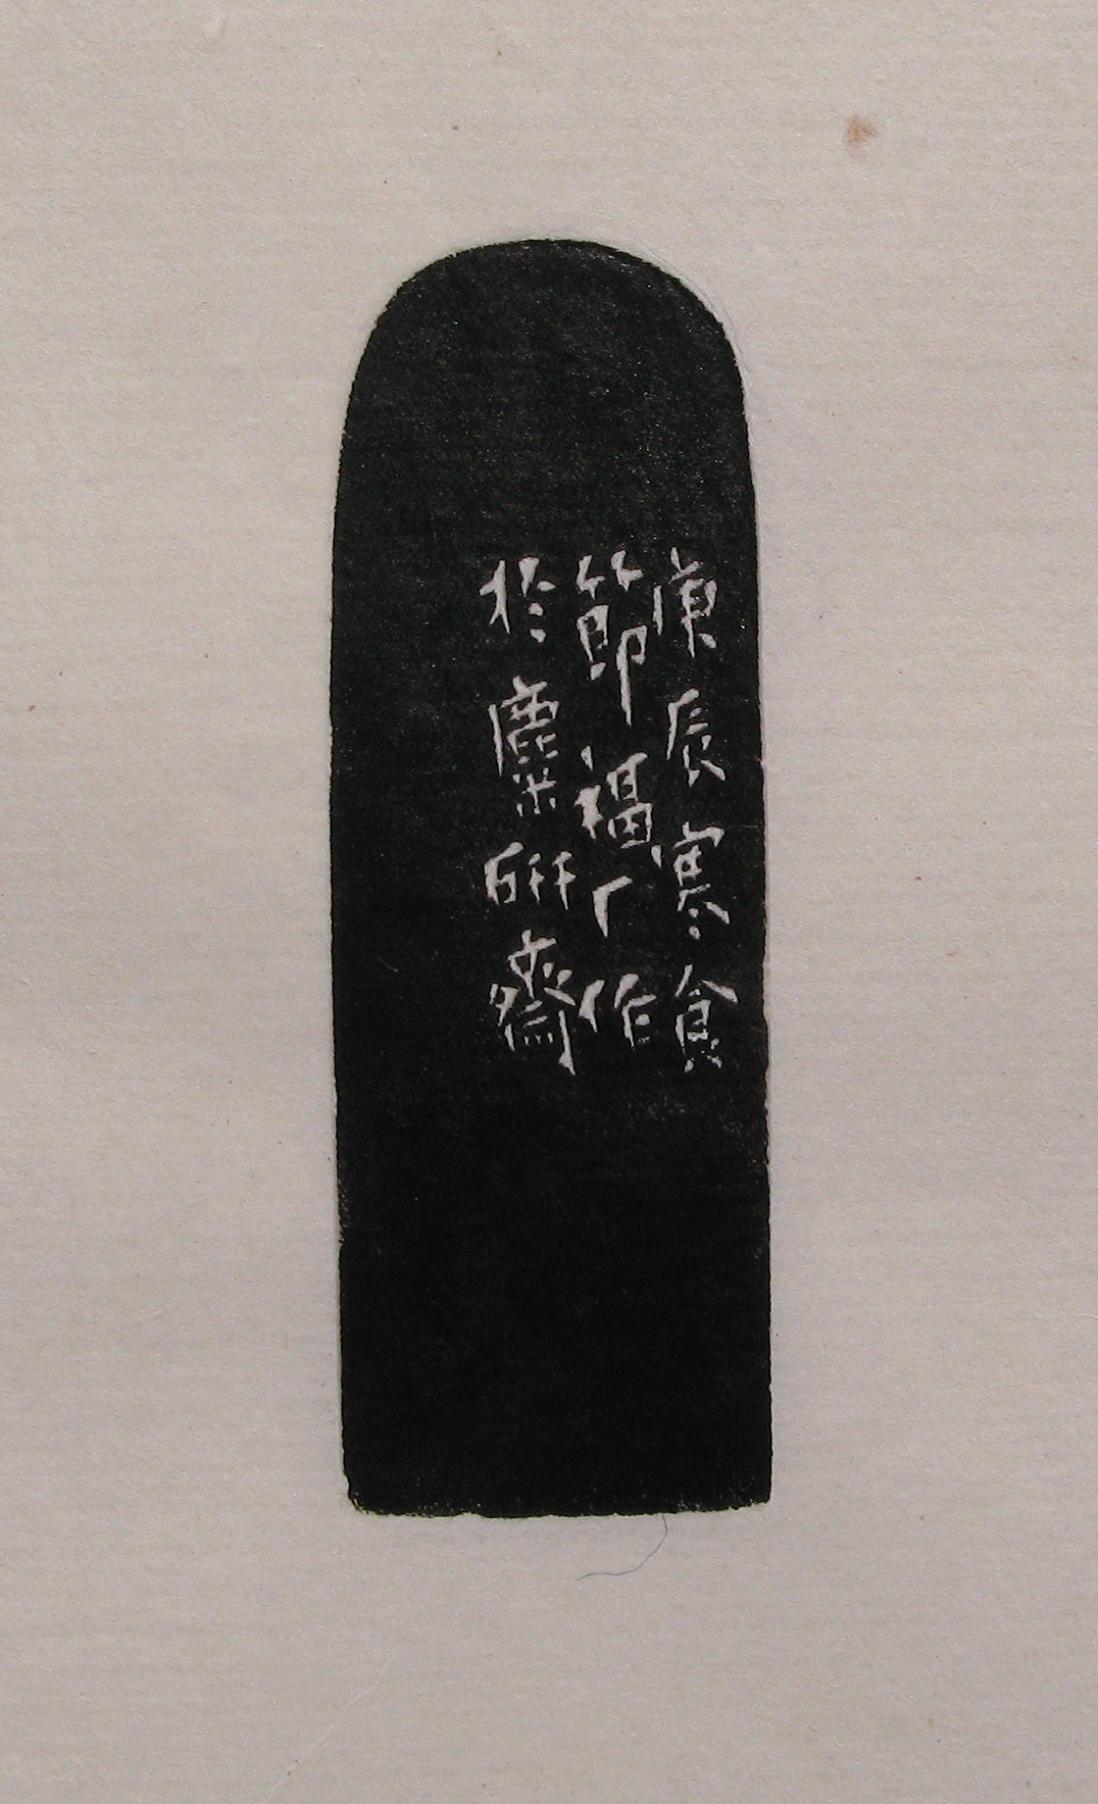 庚辰寒食
節福厂作
於麋研齋